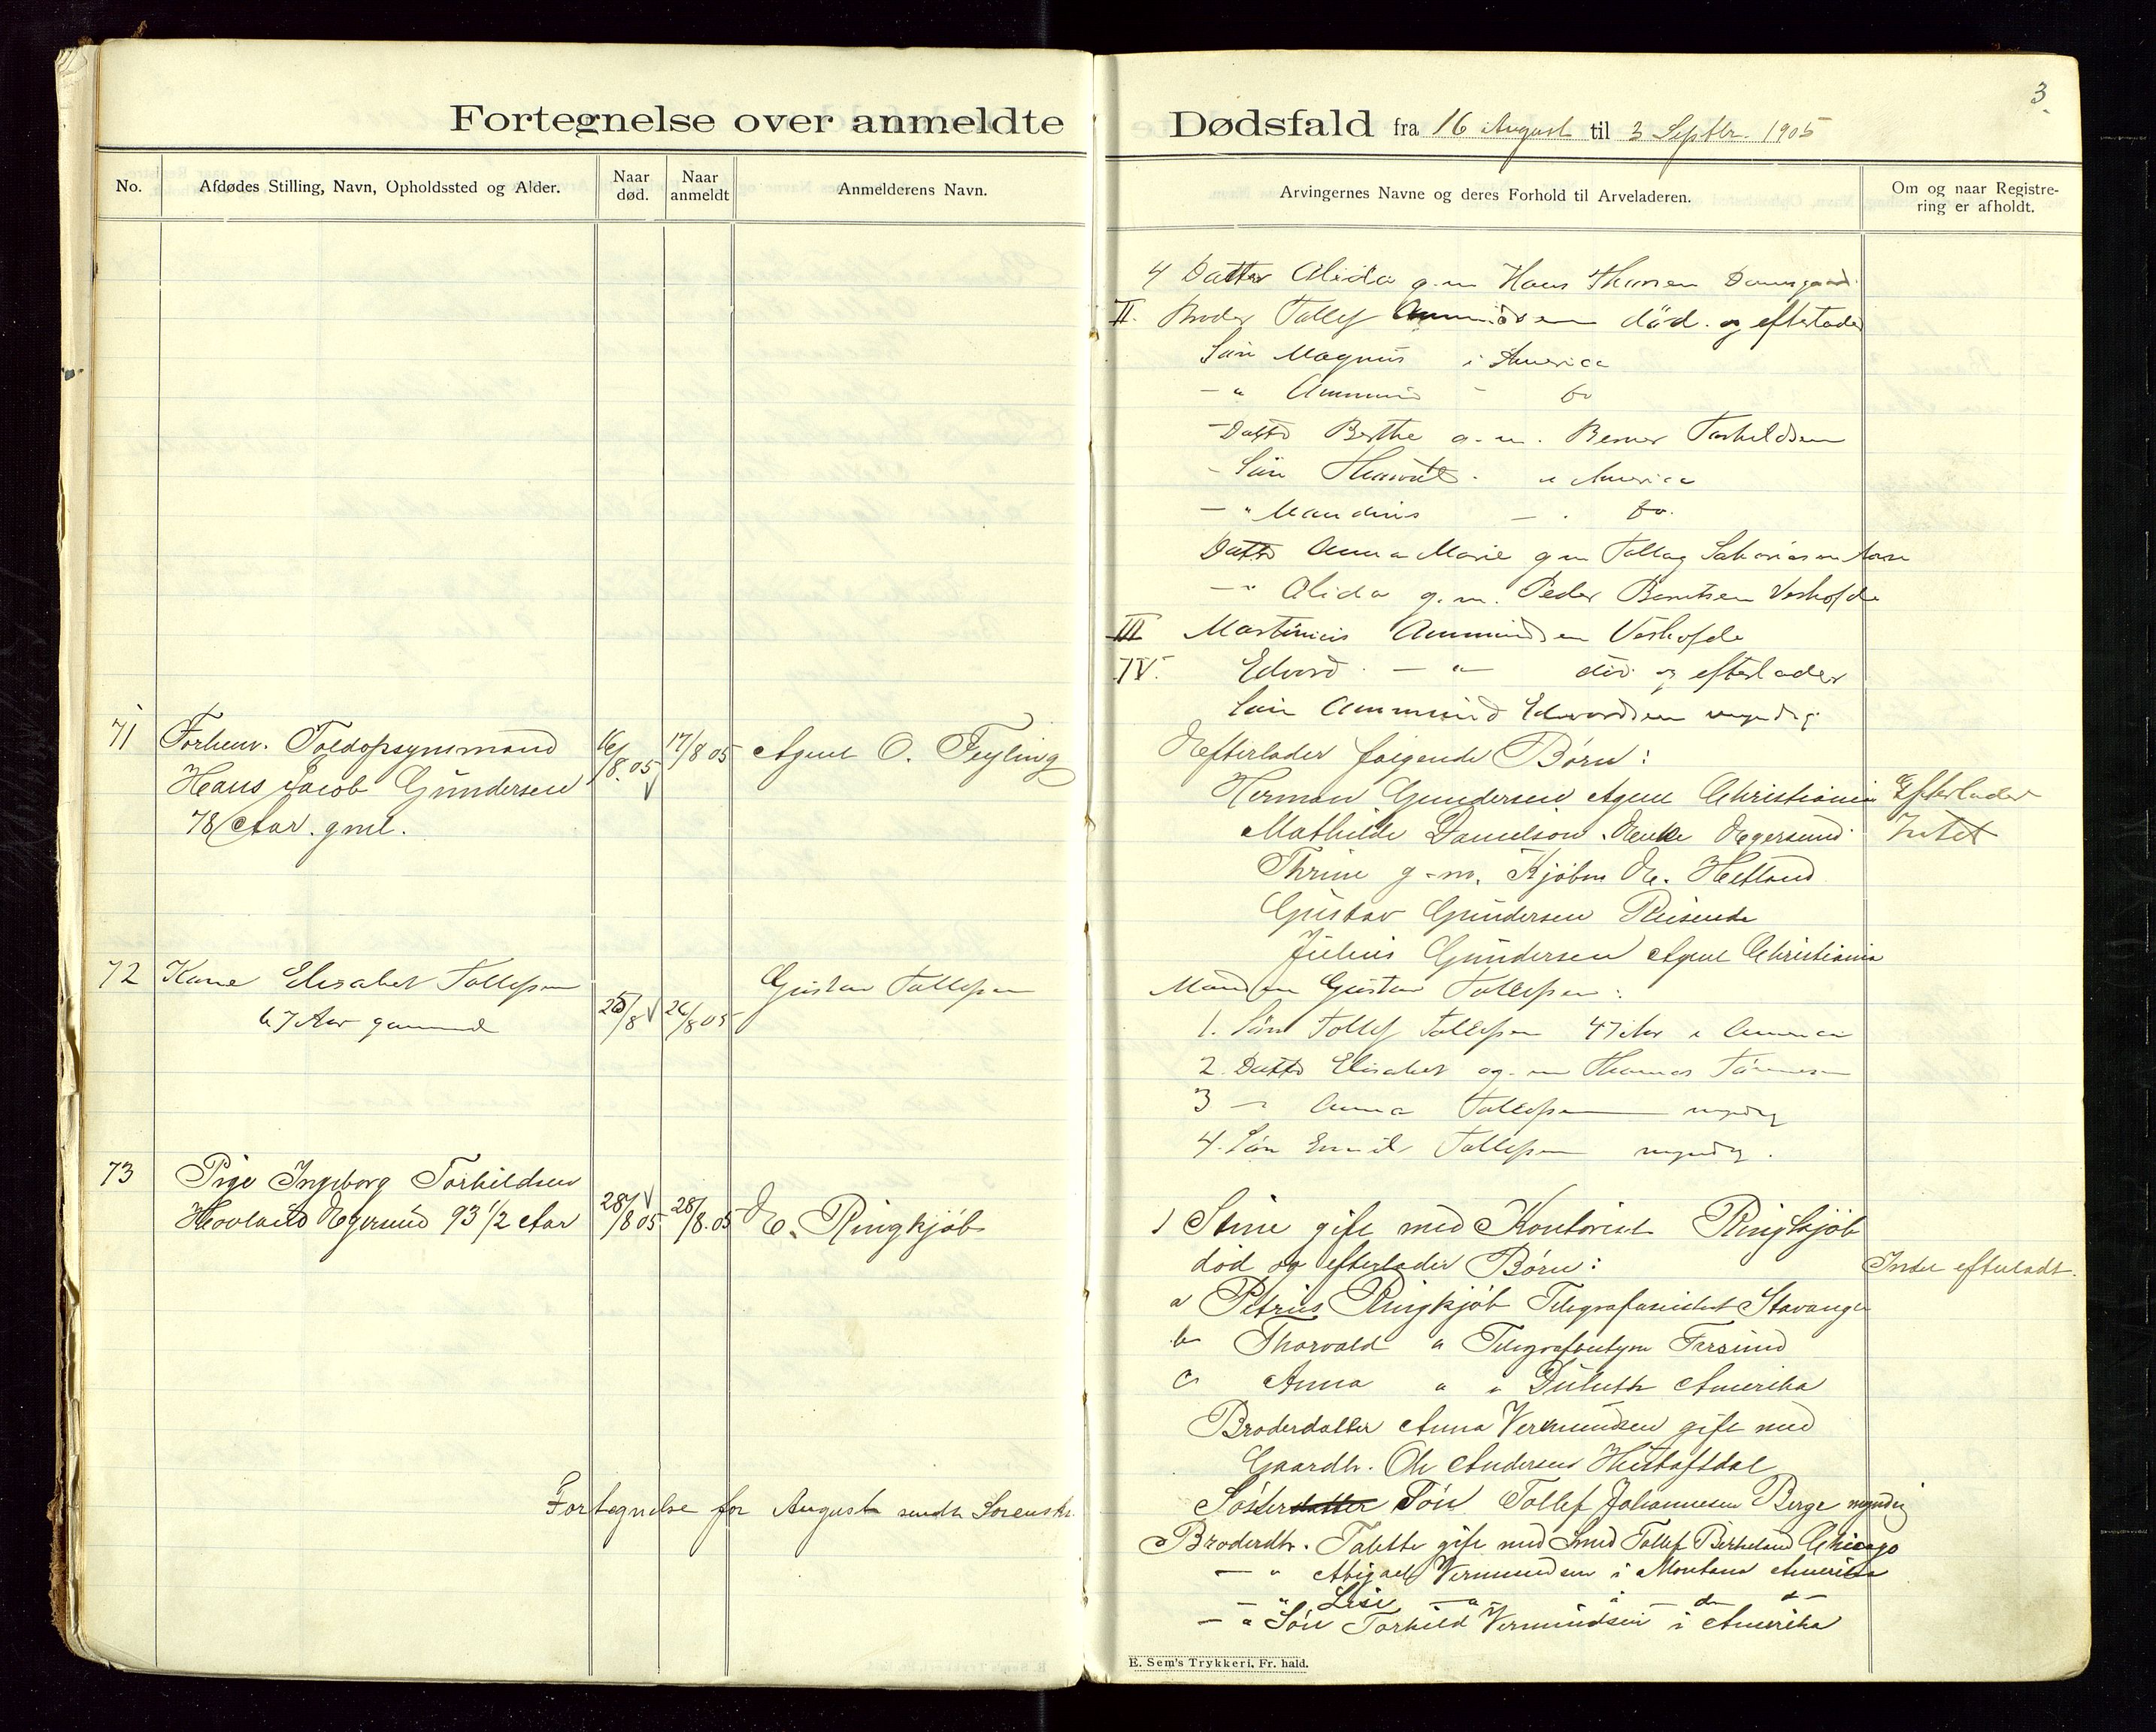 3
Fortegnelse over anmeldte Dødsfald fra 16 August til 3 Septbr. 1905
No.
Afdødes Stilling, Navn, Opholdssted og Alder.
Naar død.
Naar anmeldt
Anmelderens Navn.
Arvingernes Navne og deres Forhold til Arveladeren.
Om og naar Registrering er afholdt.
4 Datter Alida g.m Hans Damsgaard
II. Broder Tollef Ammundsen död. og efterlader
Sön Magnus i America
- " Ammund - do
- Datter Berthe g.m. Berner Torkildsen
- Sön Thorvald - i America
- " Maudius - do.
Datter Anna Marie gm Tollag Sakariasen
- " Alida g.m. Peder Berntsen Veshofde
III Martinius Ammundsen Veshofde
IV. Edvard - " - död og efterlader
Sön Ammund Edvardsen myndig
71 Forhenv. Toldopsynsmand
Hans Jacob Gundersen
78 Aar. gml.
16/8. 05
17/8 05
Agent O. Feyling
Efterlader følgende Børn:
Herman Gundersen Agent Christiania
Mathilde Danielson. Enke Egersund
Thrine g.m. Kjøbm E. Hetland
Gustav Gundersen Reisende
Julius Gundersen Agent Christiania
Efterlader
Intet
72 Kone Elisabet Tollefsen
67 Aar gammel
25/8
26/8 05
Gustav Tollefsen
Manden Gustav Tollefsen:
1. Sön Tollef Tollefsen 47 Aar i America
2. Datter Elisabet g.m Thomas Tönnesen
3 - " Anna Tollefsen myndig
4. Sön Emil Tollefsen myndig.
73 Pige Ingeborg Torkildsen
Hovland Egersund 93 1/2 Aar
28/8 05
28/8. 05
E. Ringkjøb
1 Stine gift med Kontorist Ringkjøb
død og efterlader Børn:
a Petrus Ringkjøb Stavanger
b Thorvald " Farsund
c Anna " " Duluth Amerika
Broderdatter Anna Vermundsen gift med
Gaardbr. Ole Andersen
Søster datter Sön Tollef Johannesen Berge myndig
Broderdtr. Talette gift med Smed Tollef Birkeland Chicago
- " Abigael Vermundsen i Montana Amerika
- " Lise - " - i do
- " Sön Torkild Vermundsen i Amerika
Intet efterladt.
Fortegnelse for August sendt Sorenskr.
E. Sem's Trykkeri, Fr. hald.